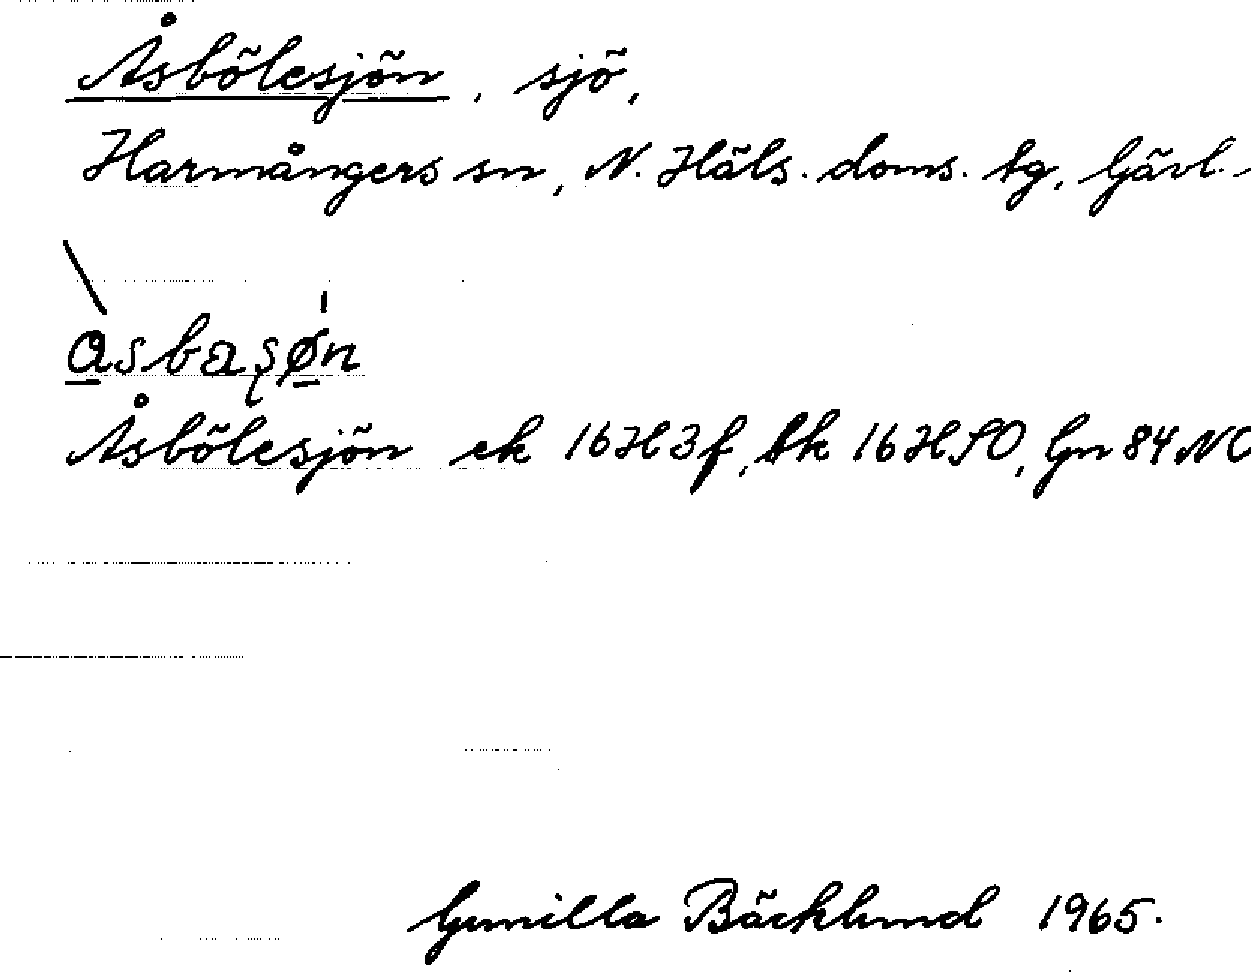 Åsbölesjön, sjö,
Harmångers sn, N. Häls. doms. tg, Gävl.
Åsbölesjön ek 16H3f, tk 16HSO, Gn 84 NO
Gunilla Bäcklund 1965.